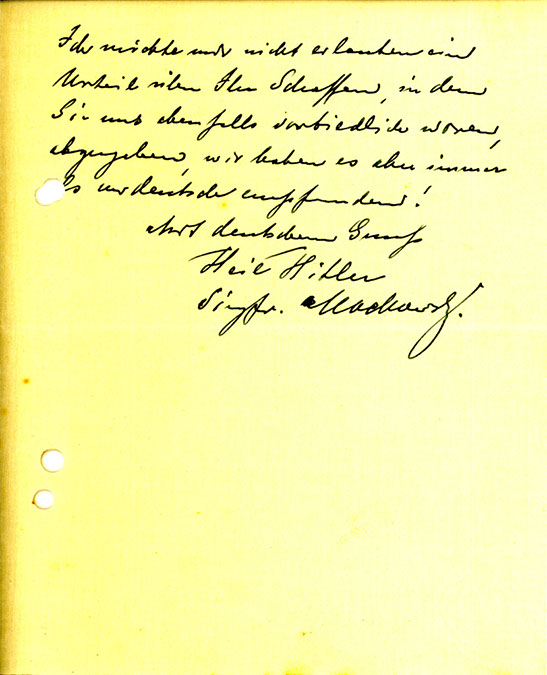 Ich möchte mir nicht erlauben ein
Urteil über Ihr Schaffen, in dem
Sie uns ebenfalls vorbildlich waren,
abzugeben, wir haben es aber immer
als urdeutsch empfunden!
Mit deutschem Gruß
Heil Hitler
Siegfr. Mackowsky.